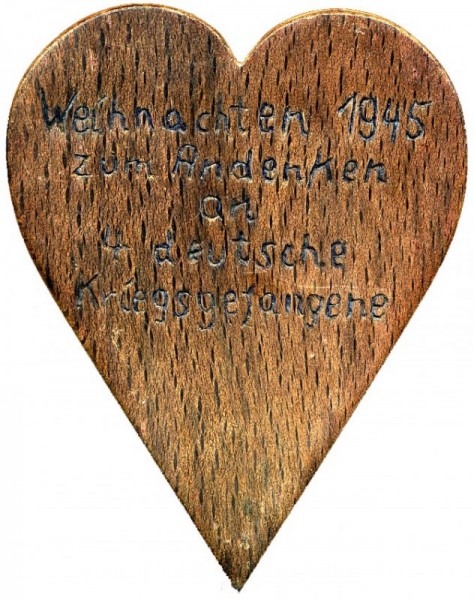 Weihnachten 1945
zum Andenken
an
4 deutsche
Kriegsgefangene